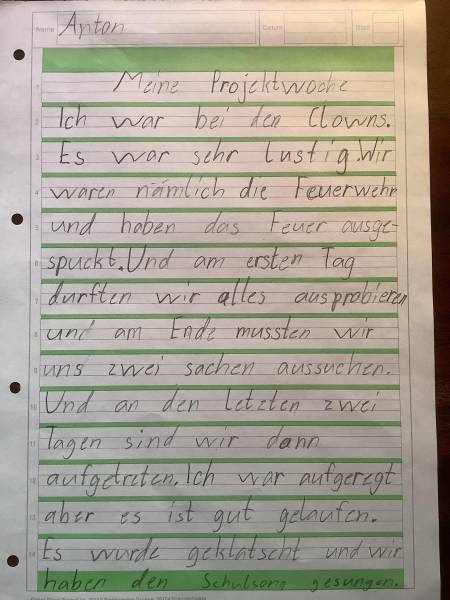 Name Anton Datum Blatt
Meine Projektwoche
Ich war bei den Clowns.
Es war sehr lustig. Wir
waren nämlich die Feuerwehr
und haben das Feuer ausge-
spuckt. Und am ersten Tag
durften wir alles ausprobieren
und am Ende mussten wir
uns zwei sachen aussuchen.
Und an den Letzten zwei
Tagen sind wir dann
aufgetreten. Ich war aufgeregt
aber es ist gut gelaufen.
Es wurde geklatscht und wir
haben den Schulsong gesungen.